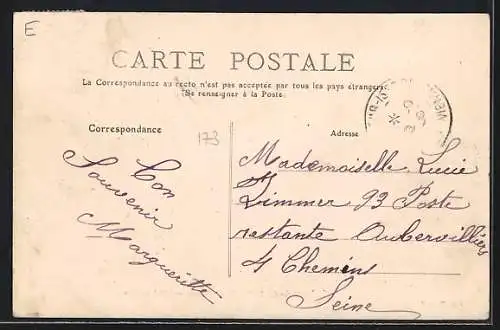 E
CARTE POSTALE
La Correspondance au recto n'est pas acceptée par tous les pays étrangers.
Se renseigner à la Poste.
Correspondance
173
Adresse
Bon
Souvenir
Marguerite
Mademoiselle Lucie
Zimmer 93 Poste
restante Aubervilliers
4 Chemins
Seine